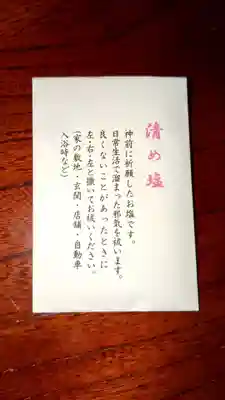 清め塩
神前に祈願したお塩です。
日常生活で溜まった邪気を祓います。
良くないことがあったときに
左・右・左と撒いてお祓いください。
(家の敷地・玄関・店舗・自動車
入浴時など)